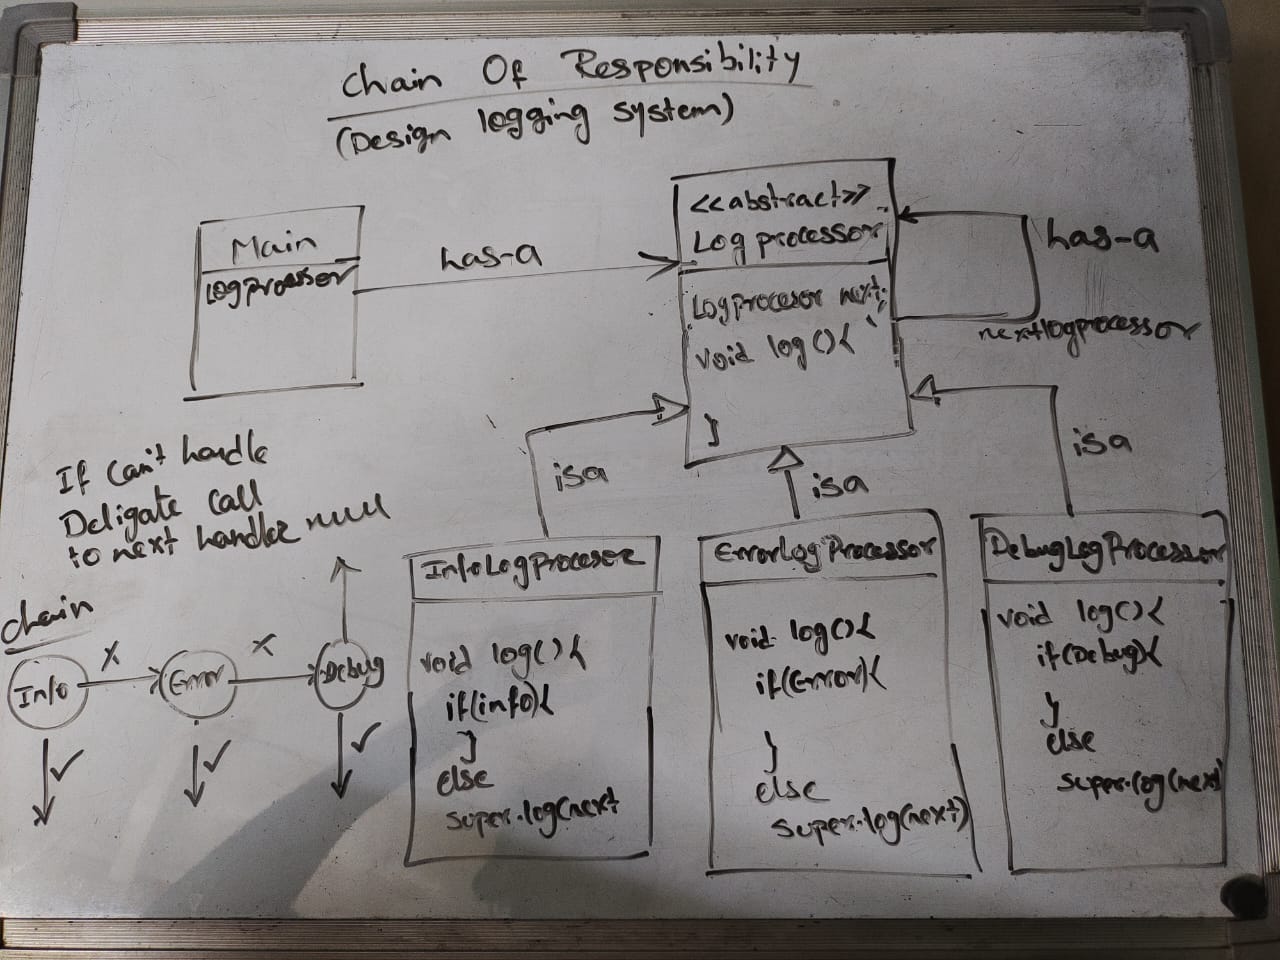 Chain Of Responsibility
(Design logging system)
<<abstract>>
Log processor
Logprocesor next;
void log(){
}
has-a
nextlogprocessor
Main
logprocessor
has-a
isa
isa
isa
If can't handle
Deligate call
to next handler
null
chain
Info
X
Error
X
Debug
✓
✓
✓
InfoLogProcesor
void log(){
if(info){
}
else
super.log(next
ErrorLogProcessor
void log(){
if(Error){
}
else
super.log(next)
DebugLogProcessor
void log(){
if(Debug){
}
else
super.log(next)